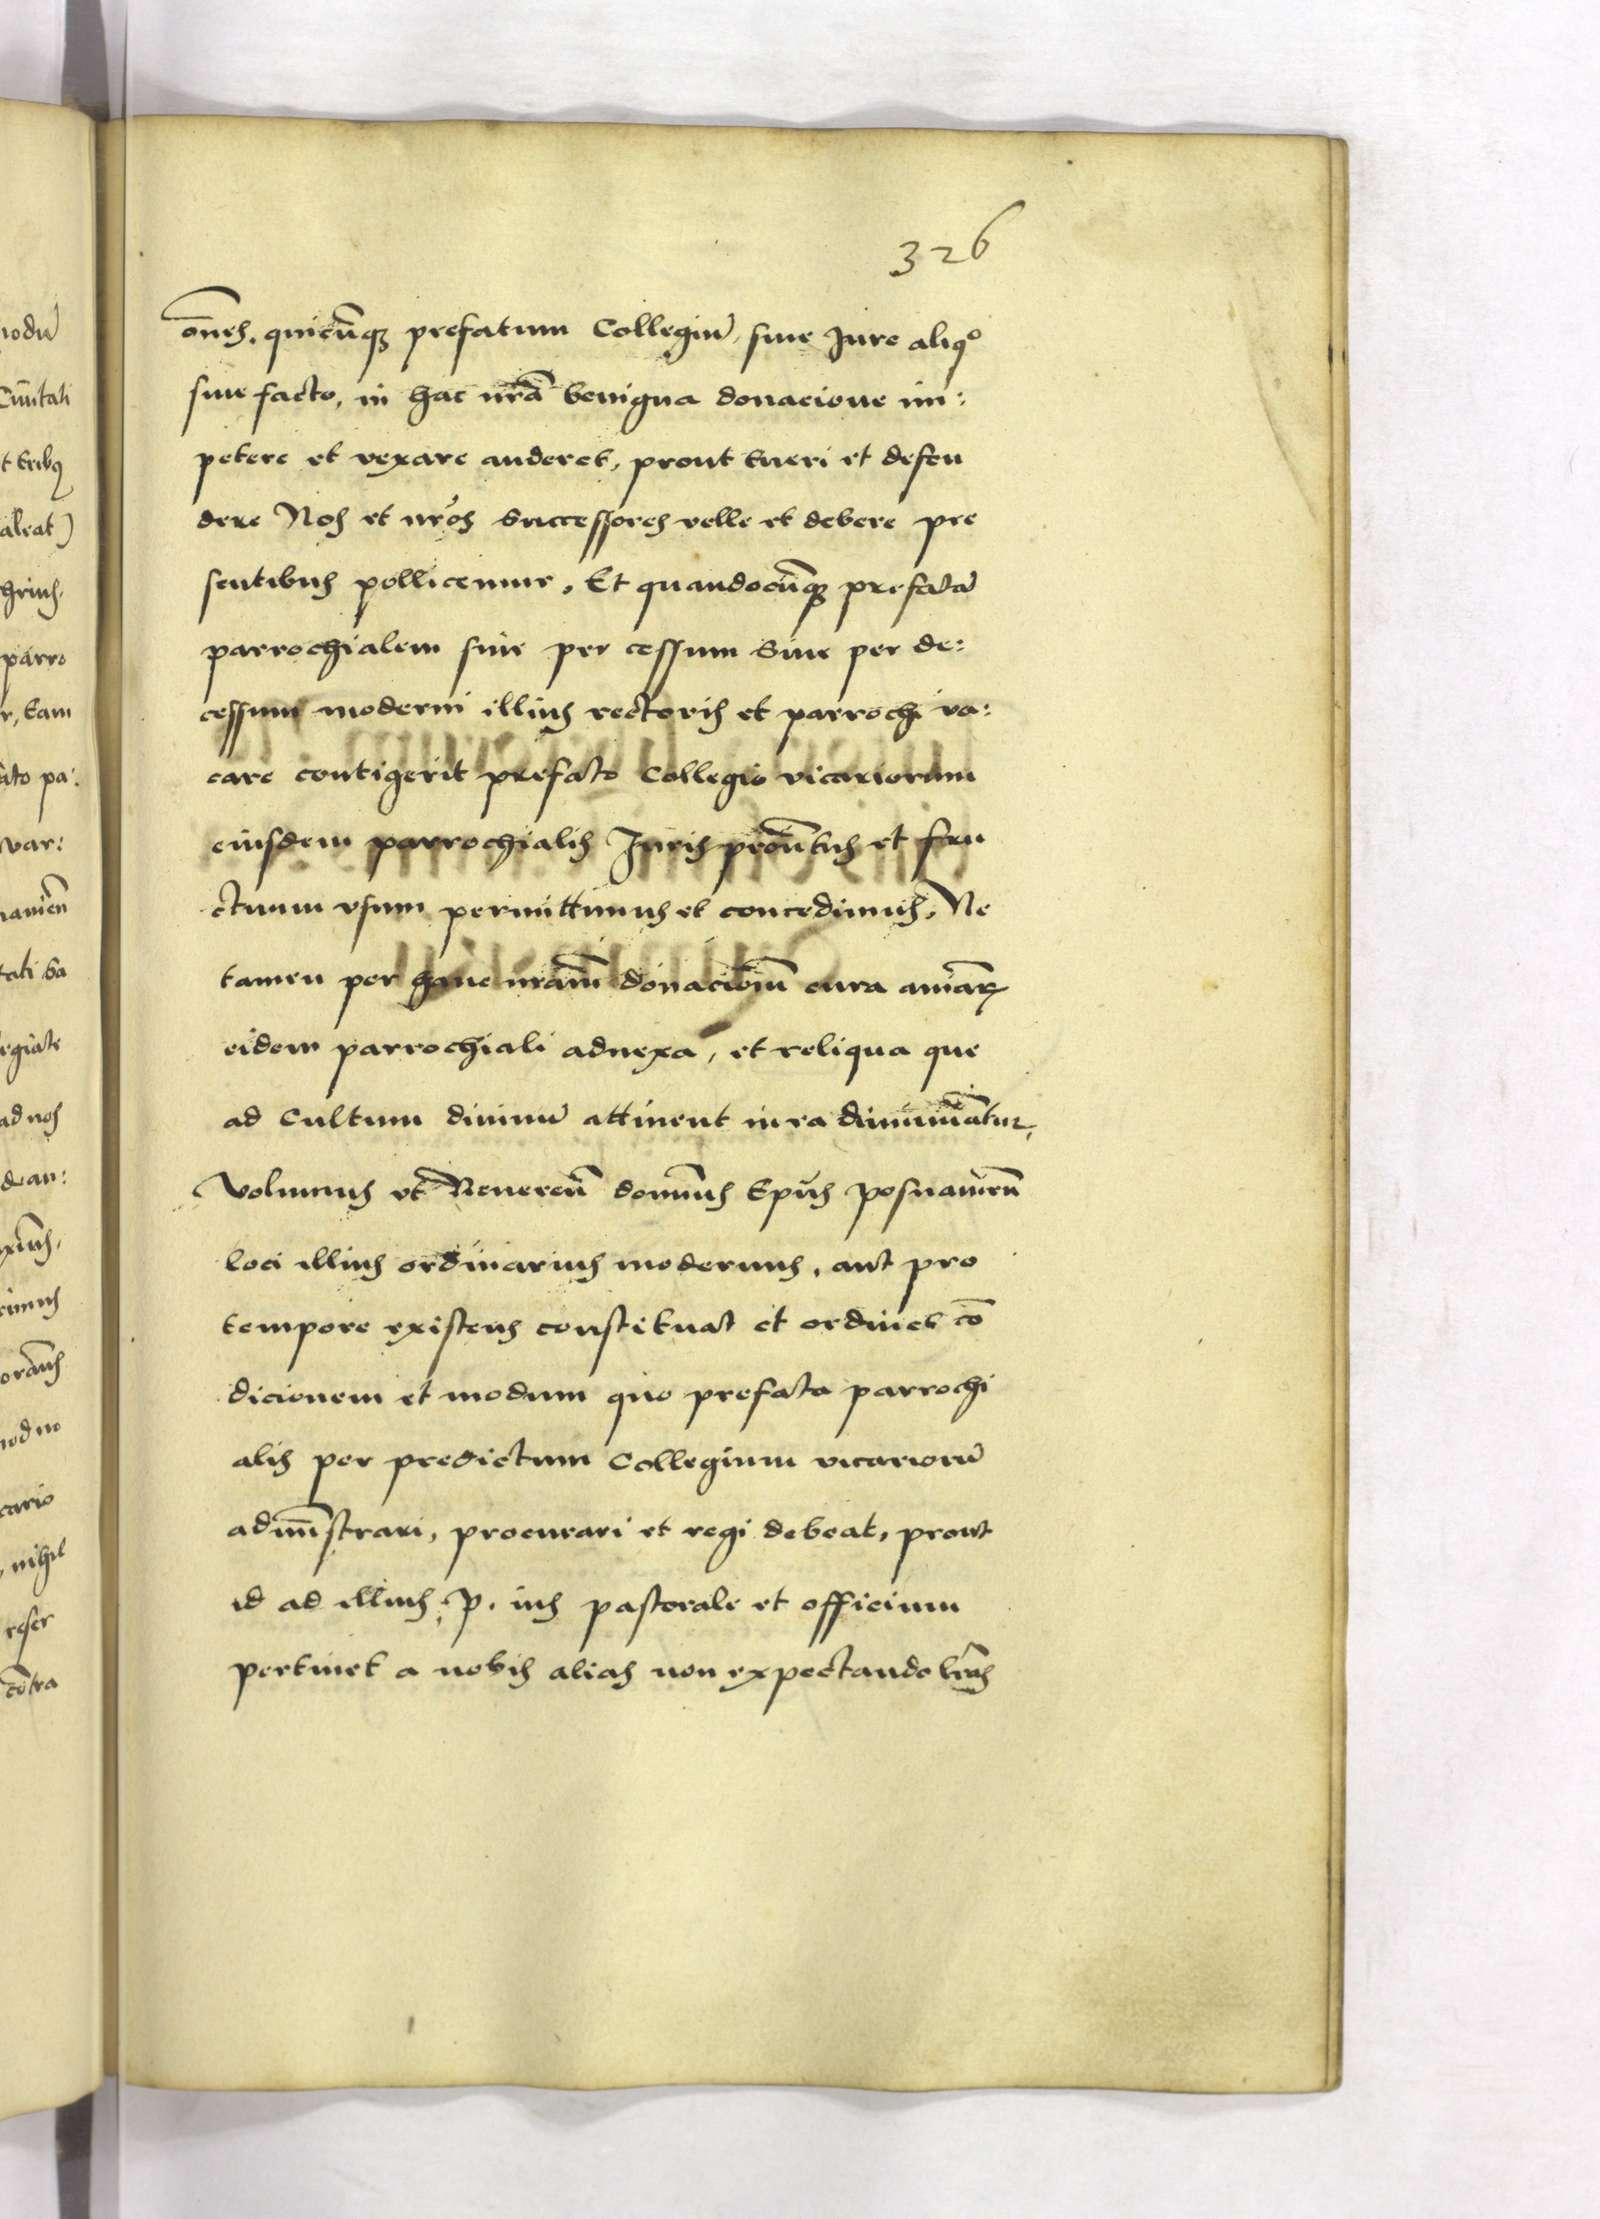 326
om̄es, quicūq3 prefatum Collegiū, siue Jure aliqo
siue facto, in hac nrā benigna donacione im:
petere et vexare auderet, prout tueri et defen
dere Nos et nrōs Successores velle et debere pre
sentibus pollicemur. Et quandocūq3 prefatā
parrochialem siue per cessum Siue per de:
cessum moderni illius rectoris et parrochi va:
care contigerit prefato Collegio vicariorum
eiusdem parrochialis Juris prouentus et fru
ctuum vsum permittimus et concedimus, Ne
tamen per hanc nram̄ donacionem̄ cura animarꝝ
eidem parrochiali adnexa, et reliqua que
ad Cultum diuinū attinent iura diminuantur,
Volumus vt Reueren̄ dominus Ep̄us posnanien̄
loci illius ordinarius modernus, aut pro
tempore existens constituat et ordinet cō
dicionem et modum quo prefata parrochi
alis per predictum Collegium vicariorū
admīstrari, procurari et regi debeat, prout
id ad illius p. ius pastorale et officium
pertinet a nobis alias non expectando lr̄as